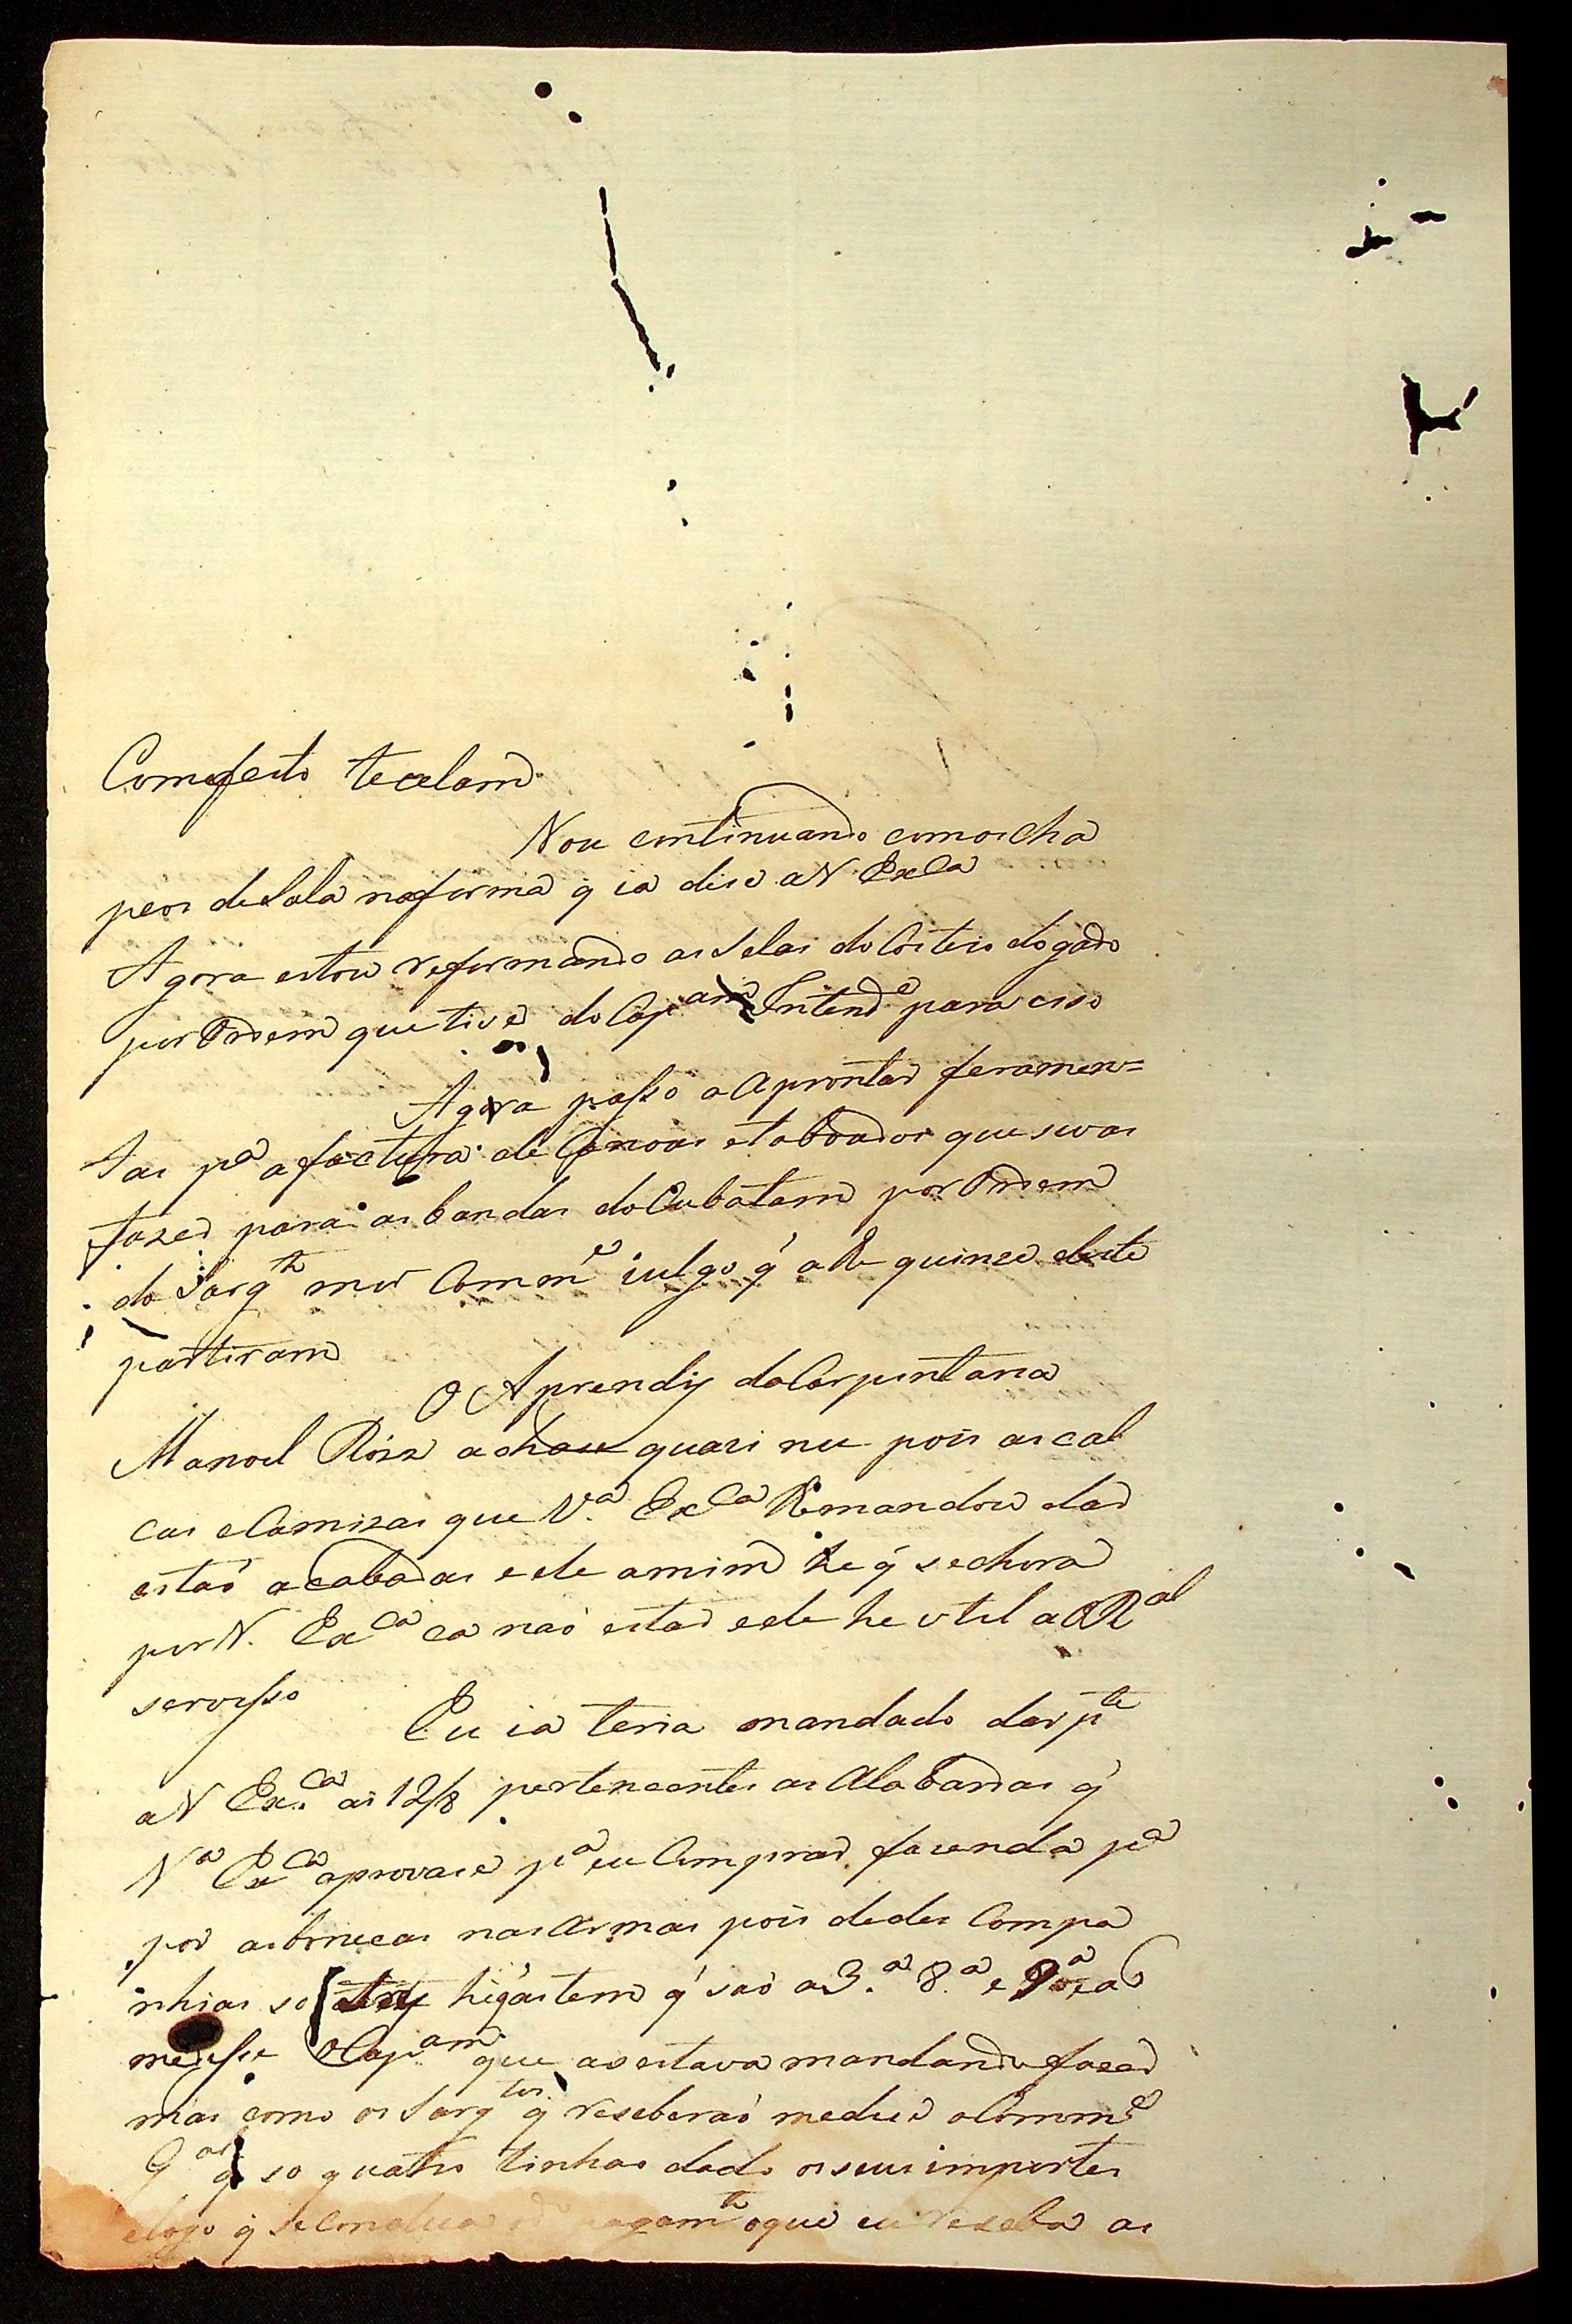 Comefeito tecelam
Vou continuando comoscha
peos desola naforma q̃ ia dise aV. Exca
Agora estou reformando as selas do Costeio dogado
por Ordem que tive do Capam Intende para eiso
Agora passo a Aprontar feramen=
tas pa a factura de Canoas etaboados que sevai
faser para as bandas do Cubatam por Ordem
do Sargto mor Comme iulgo q' athe quinze deste
partiram
O Aprendis da Carpintaria
Manoel Roiz achase quasi nu pois ascal
cas eCamizas que Va. Exca lhe mandou dar
estaõ acabadas eele amim he q' sechora
por V. Exca ca naõ estar eele he util aoRal
servisso
Eu ia teria mandado dar pte
aV Exca as 12/8 pertencentes as Alabardas q'
Va Exca aprovase pa eu Comprar fasenda pa
por asbonecas nas Armas pois dedes Compa
nhias so tres hé q' as tem q' saõ a 3.a 8.a e 9.a e a
medisse O Capam que as estava mandando faser
mas como os Sargtos q' reseberaõ medise o Comme
q' so quatro tinhaõ dado os seus importes
elogo q' se Conclua o pagamto oque eu reseba as